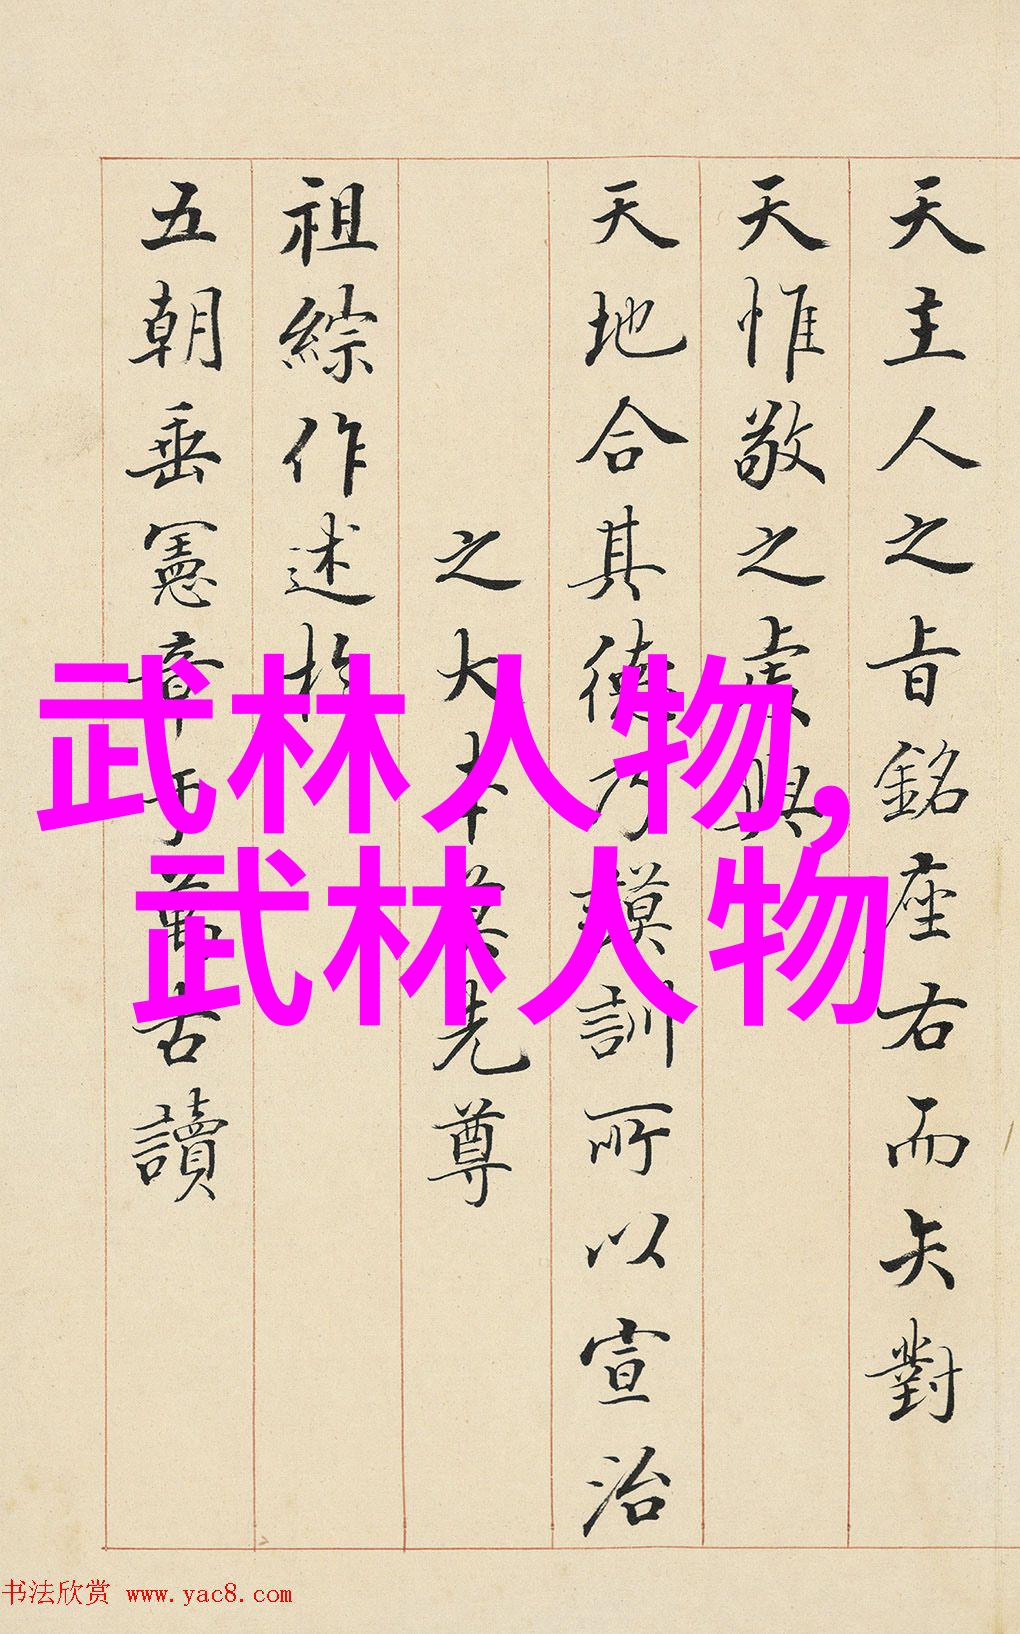 天主人之旨銘座右而矢對
天惟敬之虔與
天地合其德乃謨訓所以宣治
之大本裕先尊
祖綜作述於
五朝垂憲章于萬古讀
武林人物,
武林人物
书法欣赏 www.yac8.com